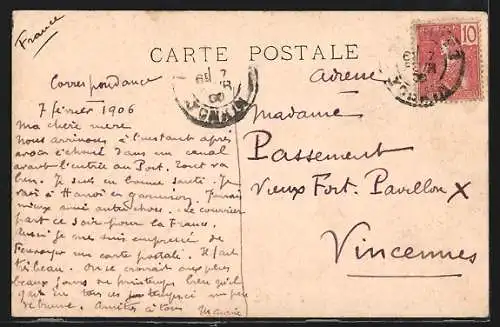 France
CARTE POSTALE
10
Correspondance
Adresse
7 février 1906
Ma chère mère
Nous arrivons à l'instant après
avoir échoué dans un canal
avant l'entrée au Port. Tout va
bien. Je suis en bonne santé. Je
vais à Hanoï en garnison.
mieux autre chose. Le courrier
part ce soir pour la France.
aussi je me suis empressé de
carte postale. Il fait
très beau. On se croirait aux plus
beaux jours du printemps bien qu'il
fait en tous ces temps ci un peu
de brume. Amitiés à tous Maurice
Madame
Passement
Vieux Fort. Pavillon X
Vincennes
TONKIN
TONKIN